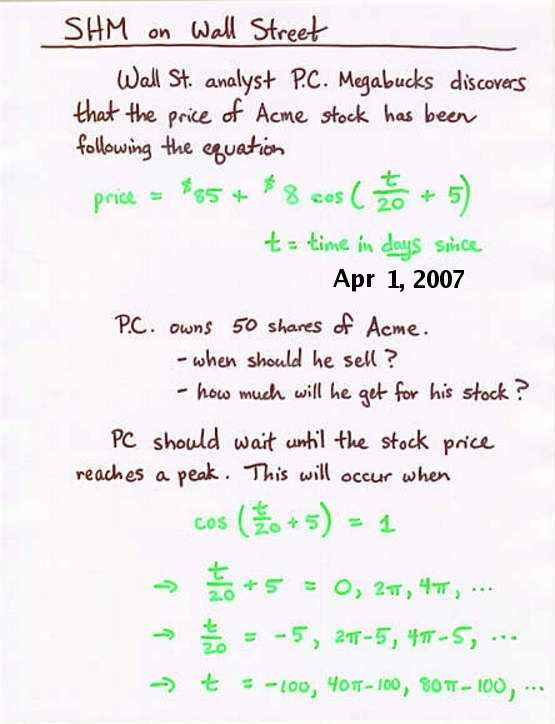 SHM on Wall Street
Wall St. analyst P.C. Megabucks discovers
that the price of Acme stock has been
following the equation
price = $85 + $8 cos ( t/20 + 5 )
t = time in days since
Apr 1, 2007
P.C. owns 50 shares of Acme.
- when should he sell?
- how much will he get for his stock?
PC should wait until the stock price
reaches a peak. This will occur when
cos ( t/20 + 5 ) = 1
→ t/20 + 5 = 0, 2π, 4π, ...
→ t/20 = -5, 2π-5, 4π-5, ...
→ t = -100, 40π-100, 80π-100, ...